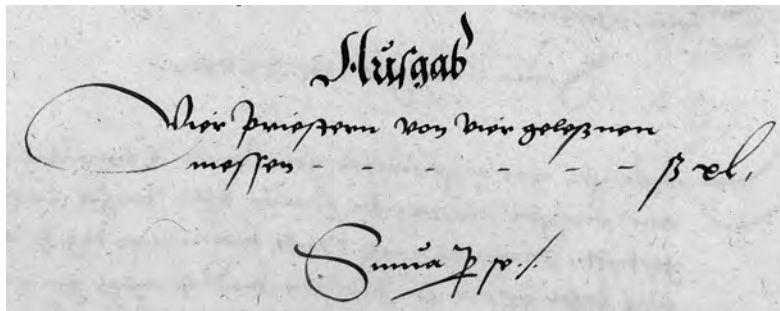 Ausgab
Vier priestern von vier geleßnen
messen - - - - - - ß xl,
Suma p se ./.